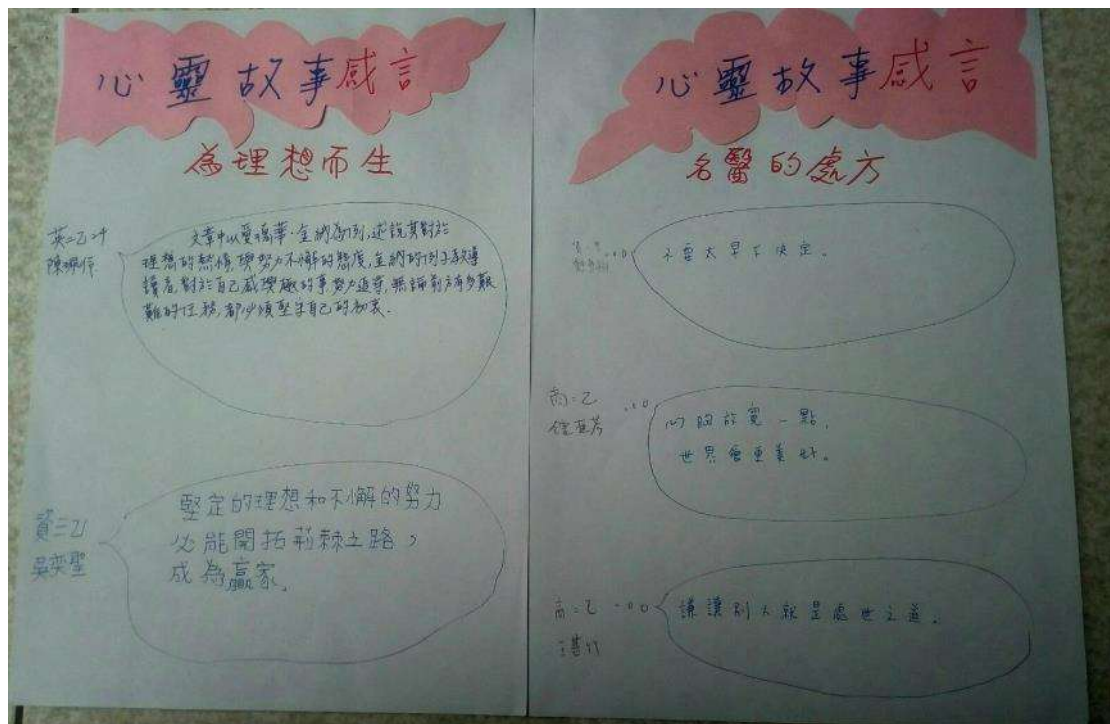 心靈故事感言
為理想而生
英二乙
陳
文章中以愛瑪華.金納為例,述說其對於
理想的熱情與努力不懈的態度,金納的例子教導
讀者,對於自己感興趣的事努力追尋,無論前方有多艱
難的任務,都必須堅守自己的初衷.
資三乙
吳奕聖
堅定的理想和不懈的努力
必能開拓荊棘之路,
成為贏家.
心靈故事感言
名醫的處方
不要太早下決定。
商二乙
心胸放寬一點,
世界會更美好。
商二乙
謙讓別人就是處世之道。